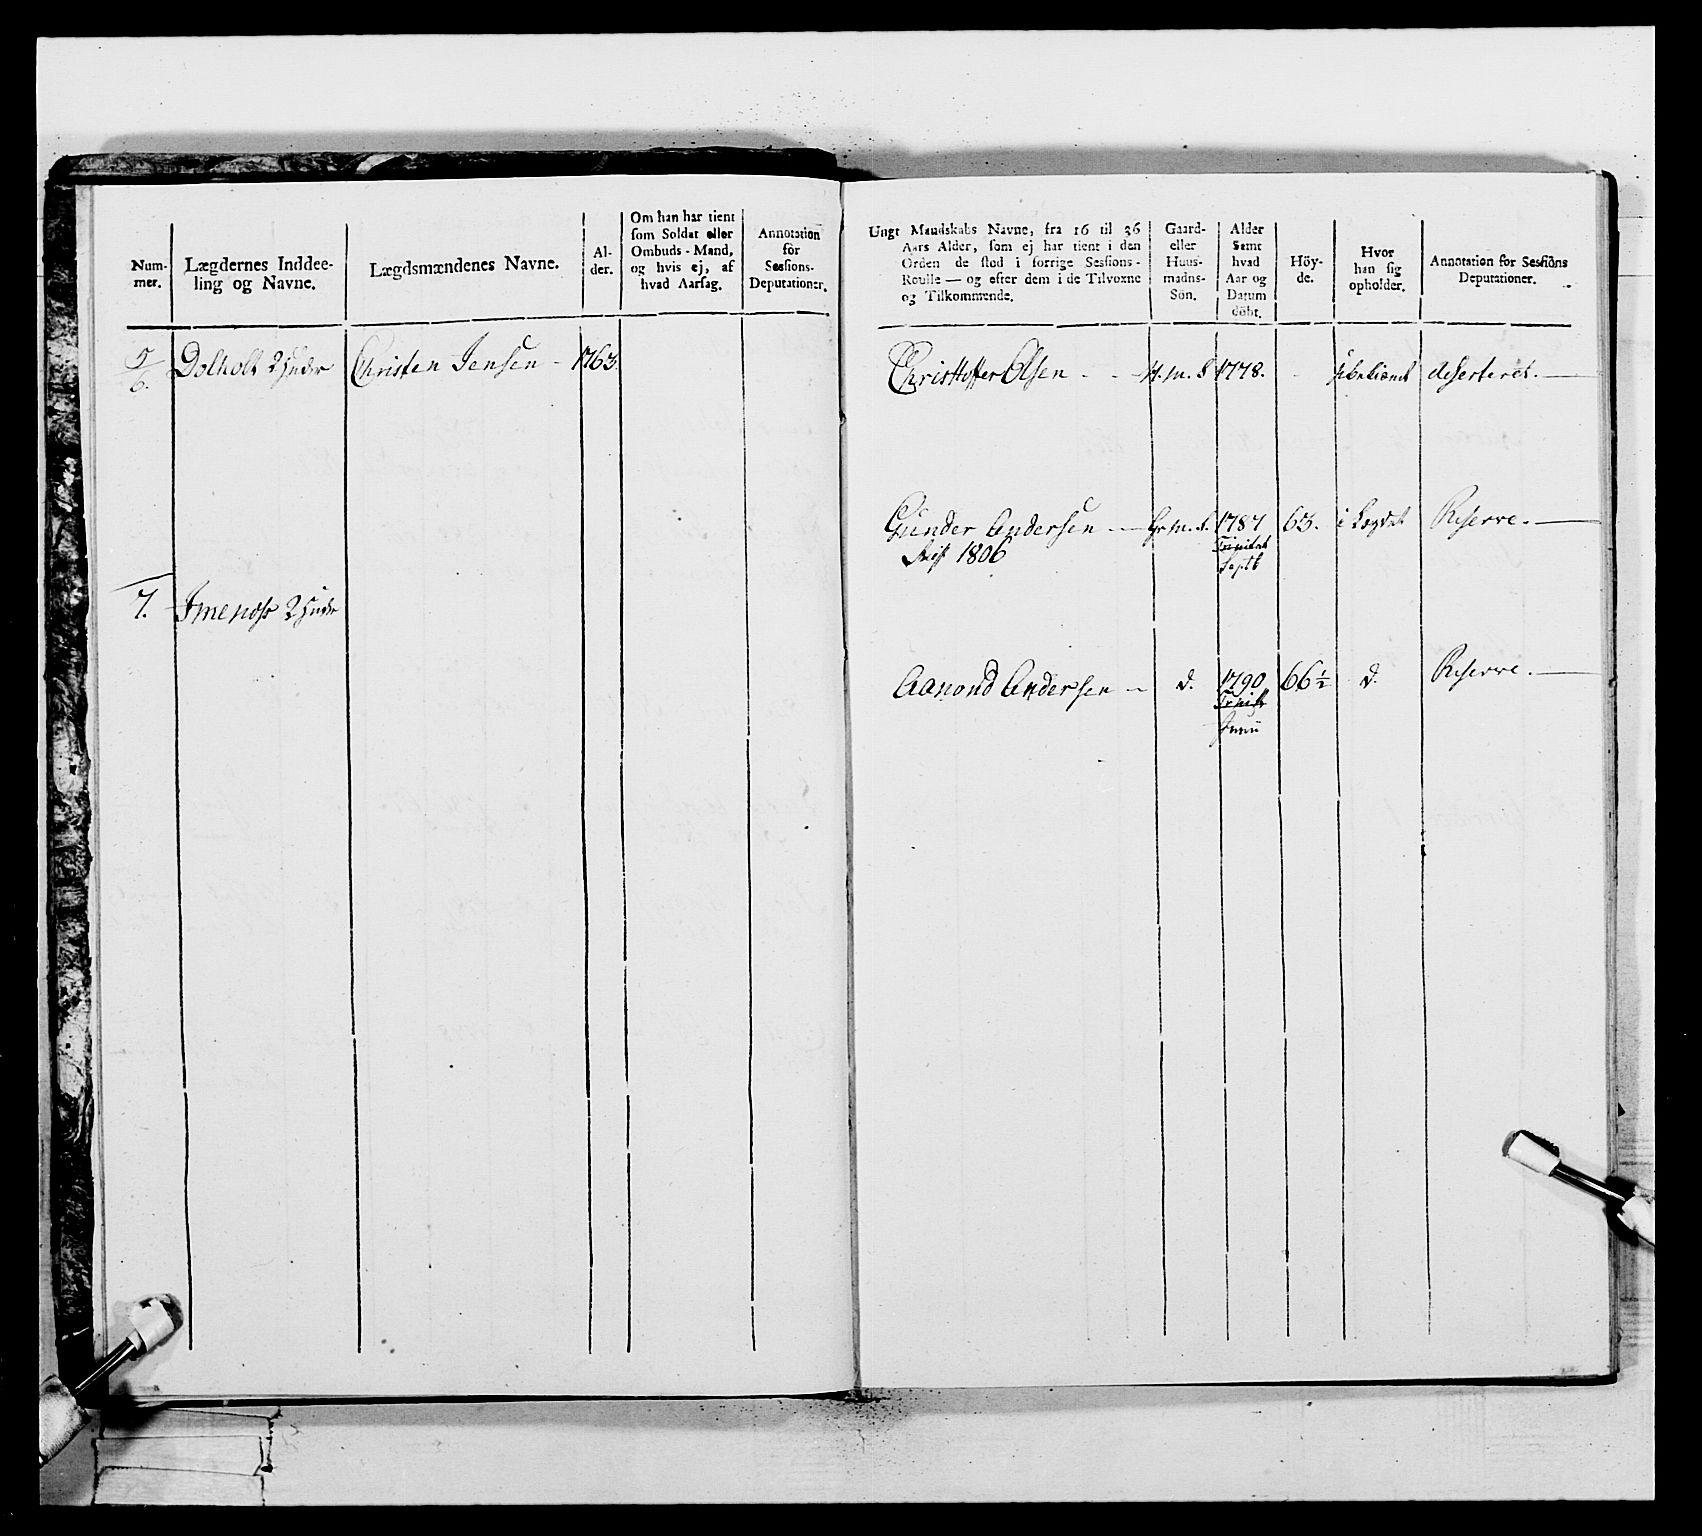 Num-
mer.
Lægdernes Inddee-
ling og Navne.
Lægdsmændenes Navne.
Al-
der.
Om han har tient
som Soldat eller
Ombuds-Mand,
og hvis ej, af
hvad Aarsag.
Annotation
for
Sessions-
Deputationer.
5/6. Dolholt 2 Huder Christen Jensen - 1763.
7. Imenæss 2 Huder
Ungt Mandskabs Navne, fra 16 til 36
Aars Alder, som ej har tient i den
Orden de stod i forrige Sessions-
Roulle — og efter dem i de Tilvoxne
og Tilkommende.
Gaard-
eller
Huus-
mands-
Sön.
Alder
Samt
hvad
Aar og
Datum
döbt.
Höy-
de.
Hvor
han sig
opholder.
Annotation for Sessions
Deputationer.
Christoffer Olsen - - H. m. S 1778. - ubekiendt deserteret.
Gunder Andersen - G. m. S. 1787 63. i Lægdet Reserve.
1806 Trinitat
Septb
Aanond Andersen - d. 1790 66 1/2 d. Reserve.
Trinit
Junii